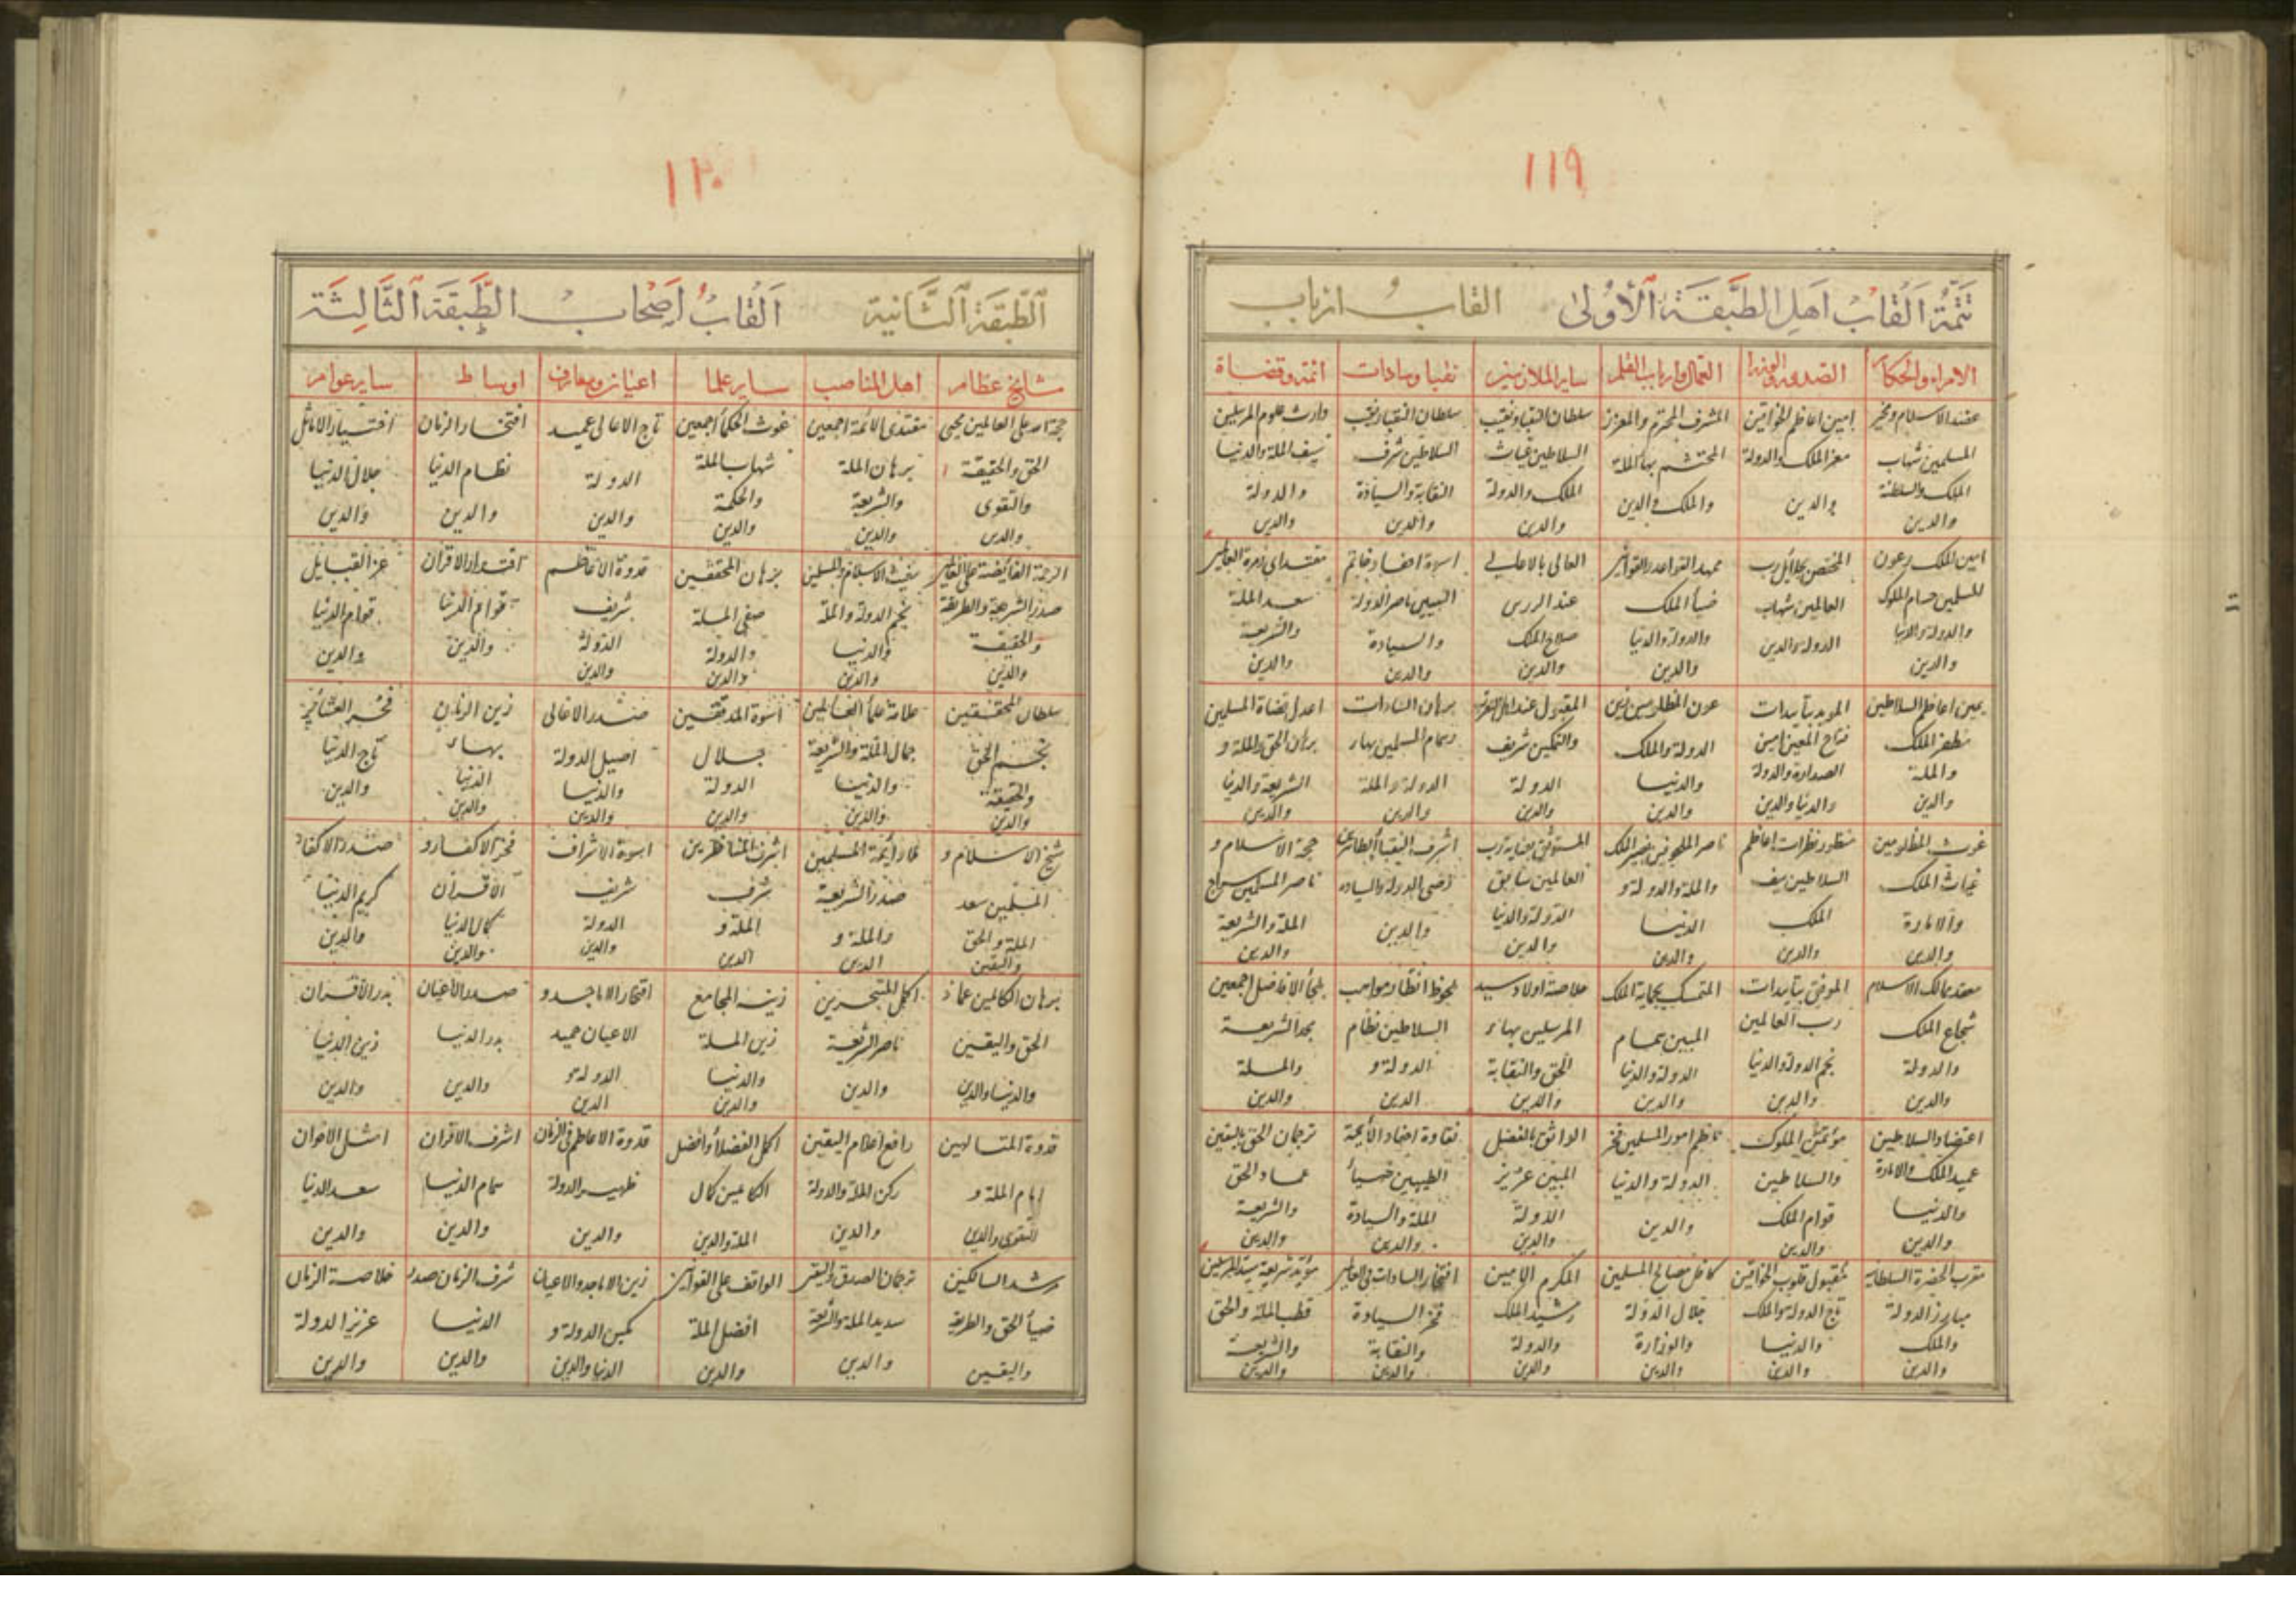 ١١٩
تَتِمَّةُ اَلْقَابُ اَهلِ الطَّبَقَةِ الْأُولىٰ القابُ ارباب
الامراء والحكام
الصدور والوزرا
العمال وارباب القلم
ساير الملازمين
نقبا وسادات
ائمه وقضاة
عضد الاسلام وفخر
المسلمين شهاب
الملك والسلطنة
والدين
امين اعاظم الخواقين
معز الملك والدولة
والدين
المشرف المحترم والمعزز
المحتشم بهاء الملة
والملك والدين
سلطان النقبا ونقيب
السلاطين غياث
الملك والدولة
والدين
سلطان النقبا ونقيب
السلاطين شرف
النقابة والسيادة
والدين
وارث علوم المرسلين
سيف الملة والدنيا
والدولة
والدين
امين الملك وعون
المسلمين حسام الملوك
والدولة والدنيا
والدين
العالمين شهاب
الدولة والدين
ممهد القواعد والقوانين
ضياء الملك
والدولة والدنيا
والدين
صلاح الملك
والدين
النبيين ناصر الدولة
والسيادة
والدين
سعد الملة
والشريعة
والدين
يمين اعاظم السلاطين
مظفر الملك
والملة
والدين
المويد بتأييدات
فتاح المعين امين
الصدارة والدولة
والدنيا والدين
عون المظلومين زين
الدولة والملك
والدنيا
والدين
والتمكين شريف
الدولة
والدين
برهان السادات
الدولة والملة
والدين
اعدل قضاة المسلمين
برهان الحق والملة و
الشريعة والدنيا
والدين
غوث المظلومين
غياث الملك
والامارة
والدين
منظور نظرات اعاظم
السلاطين سيف
الملك
والدين
والملة والدولة و
الدنيا
والدين
العالمين سابق
الدولة والدنيا
والدين
اشرف النقباء الطاهرين
والدين
حجة الاسلام و
ناصر المسلمين سراج
الملة والشريعة
والدين
ممهد ممالك الاسلام
شجاع الملك
والدولة
والدين
الموفق بتأييدات
رب العالمين
نجم الدولة والدنيا
والدين
المتمسك بحماية الملك
المبين همام
الدولة والدنيا
والدين
خلاصة اولاد سيد
المرسلين بهاء
الحق والنقابة
والدين
ملحوظ انظار مواهب
السلاطين نظام
الدولة و
الدين
ملجأ الافاضل اجمعين
مجد الشريعة
والملة
والدين
اعتضاد السلاطين
عميد الملك والامارة
والدنيا
والدين
مؤتمن الملوك
والسلاطين
قوام الملك
والدين
ناظم امور المسلمين فخر
الدولة والدنيا
والدين
الواثق بالفضل
المبين عزيز
الدولة
والدين
نقاوة احفاد الأئمة
الطيبين ضياء
الملة والسيادة
والدين
ترجمان الحق باليقين
عماد الحق
والشريعة
والدين
مقرب الحضرة السلطانية
مبارز الدولة
والملك
والدين
مقبول قلوب الخواقين
تاج الدولة والملك
والدنيا
والدين
كافل مصالح المسلمين
جلال الدولة
والوزارة
والدين
المكرم الامين
رشيد الملك
والدولة
والدين
افتخار السادات في العالمين
فخر السيادة
والنقابة
والدين
قطب الملة والحق
والشريعة
والدين
١٢٠
اَلطَّبَقَةِ الثَّانِيَةِ اَلْقَابُ اَصْحَابُ الطَّبَقَةِ الثَّالِثَةِ
مشايخ عظام
اهل المناصب
ساير علما
اعيان ومعارف
اوساط
ساير عوام
حجة الله على العالمين محيى
الحق والحقيقة
والتقوى
والدين
مقتدى الائمة اجمعين
برهان الملة
والشريعة
والدين
غوث الحكماء اجمعين
شهاب الملة
والحكمة
والدين
تاج الاعالى عميد
الدولة
والدين
افتخار الزمان
نظام الدنيا
والدين
اختيار الاماثل
جلال الدنيا
والدين
صدر الشريعة والطريقة
والحقيقة
والدين
مغيث الاسلام والمسلمين
نجم الدولة والملة
والدنيا
والدين
برهان المحققين
صفى الملة
والدولة
والدين
قدوة الاعاظم
شريف
الدولة
والدين
اقتدار الاقران
قوام الدنيا
والدين
عز القبايل
قوام الدنيا
والدين
سلطان المحققين
نجم الحق
والحقيقة
والدين
علامة علماء العالمين
جمال الملة والشريعة
والدنيا
والدين
اسوة المدققين
جلال
الدولة
والدين
صدر الاعالى
اصيل الدولة
والدنيا
والدين
زين الزمان
بهاء
الدنيا
والدين
فخر العشاير
تاج الدنيا
والدين
شيخ الاسلام و
المسلمين سعد
الملة والحق
واليقين
صدر الشريعة
والملة و
الدين
اشرف المناظرين
شرف
الملة و
الدين
اسوة الاشراف
شريف
الدولة
والدين
فخر الاكفاء و
الاقران
كمال الدنيا
والدين
صدر الاكفاء
كريم الدنيا
والدين
برهان الكاملين عماد
الحق واليقين
والدنيا والدين
اكمل المتبحرين
ناصر الشريعة
والدين
زينة المجامع
زين الملة
والدنيا
والدين
افتخار الاماجد و
الاعيان حميد
الدولة و
الدين
صدر الاعيان
بدر الدنيا
والدين
بدر الاقران
زين الدنيا
والدين
قدوة المتالهين
امام الملة و
التقوى والدين
رافع اعلام اليقين
ركن الملة والدولة
والدين
اكمل الفضلاء وافضل
كمال
الملة والدين
قدوة الاعاظم في الزمان
ظهير الدولة
والدين
اشرف الاقران
حسام الدنيا
والدين
امثل الاخوان
سعد الدنيا
والدين
مرشد السالكين
ضياء الحق والطريقة
واليقين
ترجمان الصدق واليقين
سديد الملة والشريعة
والدين
الواقف على القوانين
افضل الملة
والدين
زين الاماجد والاعيان
مكين الدولة و
الدنيا والدين
شرف الزمان صدر
الدنيا
والدين
خلاصة الزمان
عزيز الدولة
والدين